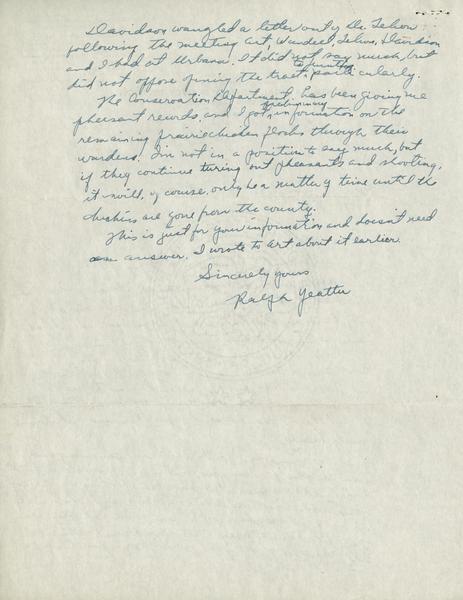 Davidson wangled a letter out of Dr. Tehon
following the meeting Art, Wandell, Tehon, Davidson
and I had at Urbana. I did not say much, but
did not oppose giving the tract to forestry particularly.
The Conservation Department, has been giving me
pheasant records, and I got preliminary information on the
remaining prairie chicken flocks through their
wardens. I'm not in a position to say much, but
if they continue turning out pheasants and shooting,
it will, of course, only be a matter of time until the
chickens are gone from the county.
This is just for your information and doesn't need
an answer. I wrote to Art about it earlier.
Sincerely yours
Ralph Yeatter